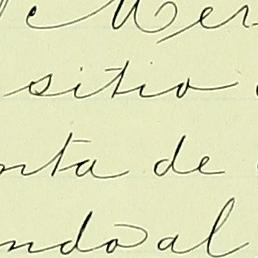 Mer
sitio
nta de
ndo al